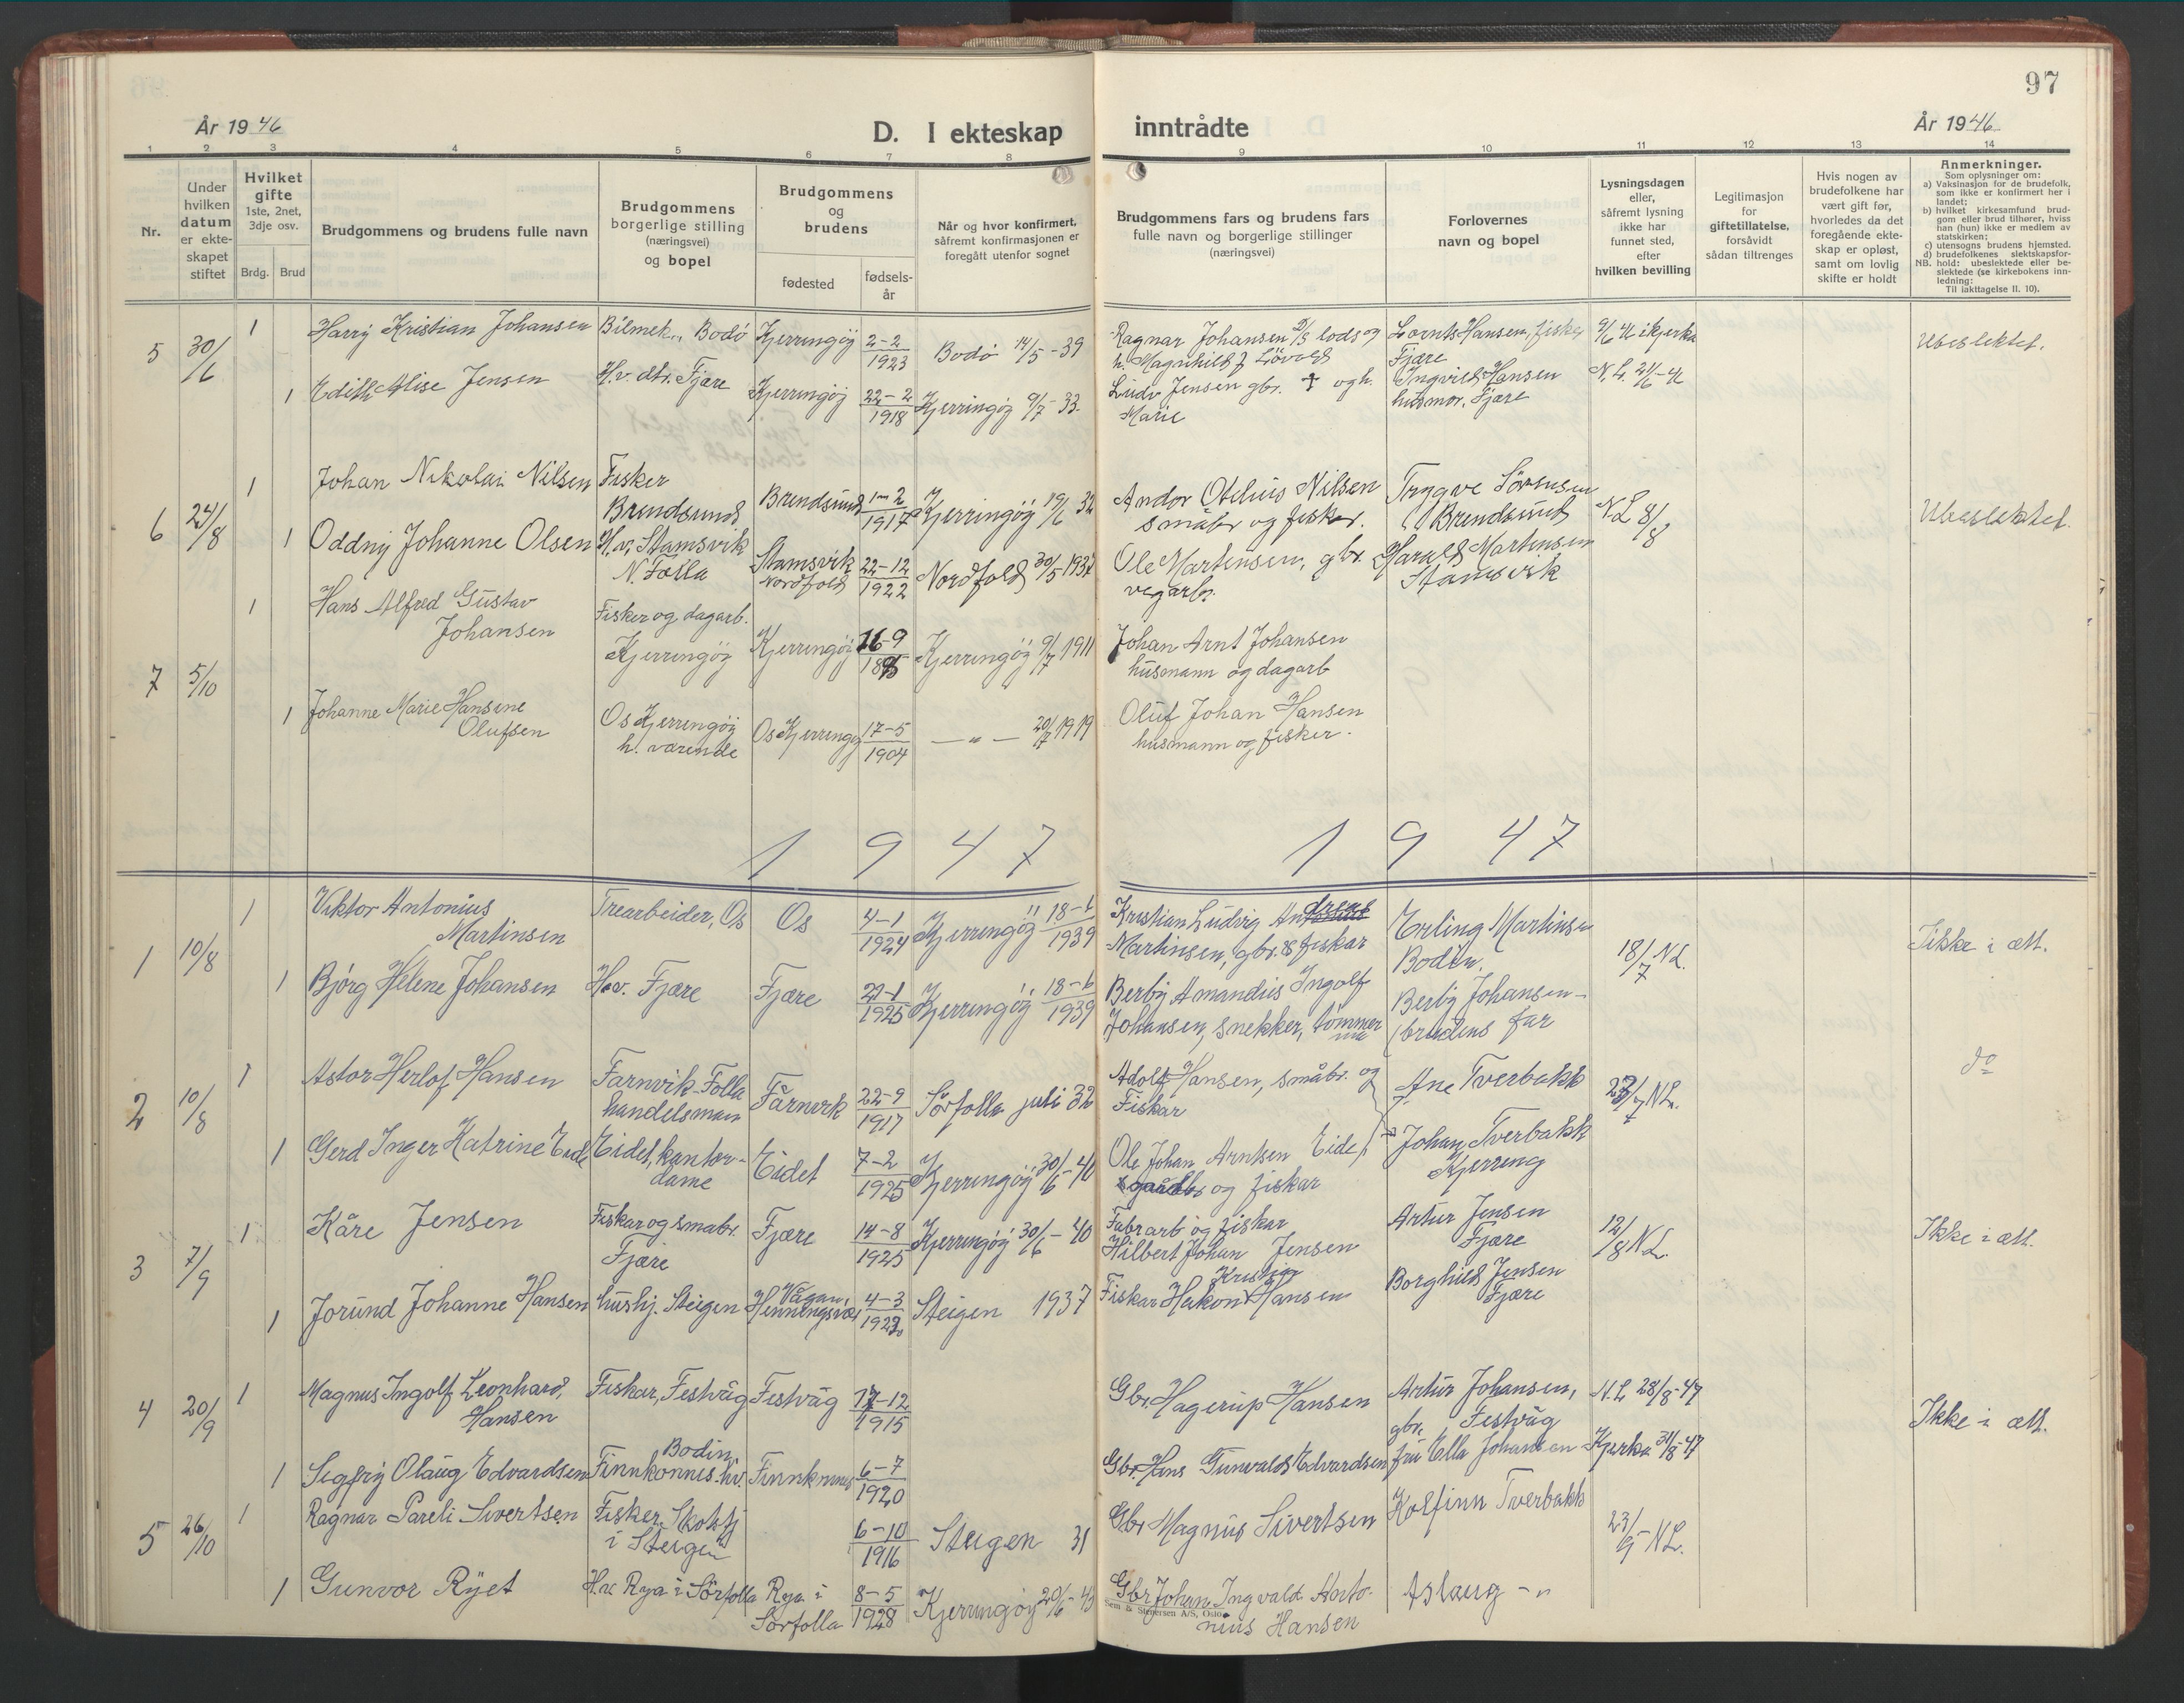 97
År 1946
D. I ekteskap inntrådte
År 1946
1 2 3 4 5 6 7 8 9 10 11 12 13 14
Nr.
Under hvilken datum er ekte-skapet stiftet
Hvilket gifte 1ste, 2net, 3dje osv.
Brdg. Brud
Brudgommens og brudens fulle navn
Brudgommens borgerlige stilling (næringsvei) og bopel
Brudgommens og brudens
fødested
fødsels-år
Når og hvor konfirmert, såfremt konfirmasjonen er foregått utenfor sognet
Brudgommens fars og brudens fars fulle navn og borgerlige stillinger (næringsvei)
Forlovernes navn og bopel
Lysningsdagen eller, såfremt lysning ikke har funnet sted, efter hvilken bevilling
Legitimasjon for giftetillatelse, forsåvidt sådan tiltrenges
Hvis nogen av brudefolkene har vært gift før, hvorledes da det foregående ekte-skap er opløst, samt om lovlig skifte er holdt
Anmerkninger.
Som oplysninger om:
a) Vaksinasjon for de brudefolk, som ikke er konfirmert her i landet;
b) hvilket kirkesamfund brud-gom eller brud tilhører, hviss han (hun) ikke er medlem av statskirken;
c) utensogns brudens hjemsted.
d) brudefolkenes slektskapsfor-
NB. hold: ubeslektede eller be-slektede (se kirkebokens inn-ledning:
Til iakttagelse II. 10).
5 30/6 1 Harry Kristian Johansen Bilmek., Bodö Kjerringöy 2-2 1923 Bodö 14/5-39 Ragnar Johansen lods og h. Magnhild f Lövold Lornts Hansen, fisker Fjære 9/6 46 i kjerka Ubeslektet.
1 Edith Alise Jensen H.v. dtr. Fjære Kjerringöy 22-2 1918 Kjerringöy 9/7-33 Ludv Jensen gbr. † og h. Marie Ingvild Hansen husmor. Fjære N.L. 21/6-46
6 24/8 1 Johan Nikolai Nilsen Fisker Brendsund Brendsund 1-2 1917 Kjerringöy 19/6 32 Andor Otelius Nilsen småbr og fisker. Trygve Sörensen Brendsund N.L 8/8 Ubeslektet.
1 Oddny Johanne Olsen H.v. Stamsvik N. Folla Stamsvik Nordfold 22-12 1922 Nordfold 30/5 1937 Ole Martinsen, gbr. vegarb. Harald Martinsen Stamsvik
7 5/10 1 Hans Alfred Gustav Johansen Fisker og dagarb. Kjerringöy Kjerringöy 16-9 1895 Kjerringöy 9/7 1911 Johan Arnt Johansen husmann og dagarb
1 Johanne Marie Hansine Olufsen Os Kjerringöy h. værende Os Kjerringöy 17-5 1904 — " — 20/7 1919 Oluf Johan Hansen husmann og fisker.
1947 1947
1 10/8 1 Viktor Antonius Martinsen Trearbeider, Os Os 4-1 1924 Kjerringöy 18-6 1939 Kristian Ludvig Andreas Martinsen, gbr. og fiskar Erling Martinsen Bodin. 18/7 N.L. Ikke i ætt.
1 Bjørg Helene Johansen H.v. Fjære Fjære 21-1 1925 Kjerringöy 18-6 1939 Berby Amandius Ingolf Johansen, snekker, tömmer Berby Johansen - brudens far
2 10/8 1 Astor Herlof Hansen Farnvik-Folla handelsmann Farnvik 22-9 1917 Sörfolla juli 32 Adolf Hansen, småbr. og Fiskar Ane Tverbakk 23/7 N.L. do
1 Gerd Inger Katrine Eide Eidet, kontor-dame Eidet 7-2 1925 Kjerringöy 30/6-40 Ole Johan Arntsen Eide, gårdbr og fiskar Johan Tverbakk Kjerring
3 7/9 1 Kåre Jensen Fiskar og småbr. Fjære Fjære 14-8 1925 Kjerringöy 30/6-40 Fabr arb og fiskar Hilbert Johan Jensen Artur Jensen Fjære 12/8 N.L. Ikke i ætt.
1 Jorund Johanne Hansen hushj. Steigen Vågan, Henningsvær 4-3 1923 Steigen 1937 Fiskar Håkon Kristian Hansen Borghild Jensen Fjære
4 20/9 1 Magnus Ingolf Leonhard, Hansen Fiskar, Festvåg Festvåg 17-12 1915 Gbr. Hagerup Hansen Artur Johansen, gbr. Festvåg N.L. 28/8-47 Ikke i ætt.
1 Sigfrid Olaug Edvardsen Bodin, Finnkonnes. hv. Finnkonnes 6-7 1920 Gbr. Hans Gunvald Edvardsen fru Ella Johansen Kjerka 31/8-47
5 26/10 1 Ragnar Pareli Sivertsen Fisker, i Steigen 6-10 1916 Steigen 31 Gbr Magnus Sivertsen Kolfinn Tverbakk 23/9 N.L.
1 Gunvor Ryet H.v. Rya i Sörfolla Rya i Sörfolla 8-5 1928 Kjerringöy 20/6-43 Gbr Johan Ingvald Antonius Hansen Aslaug - "
Sem & Stenersen A/S, Oslo.